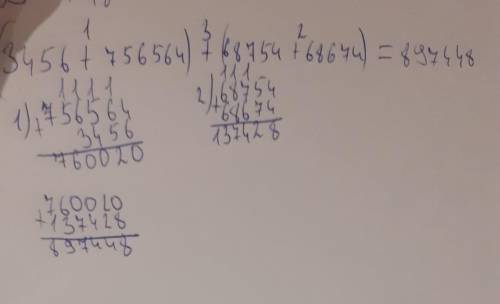 1 3 2
(3456 + 756564) + (68754 + 68674) = 897448
1111
1) + 756564
3456
760020
111
2) + 68754
68674
137428
760020
+ 137428
897448